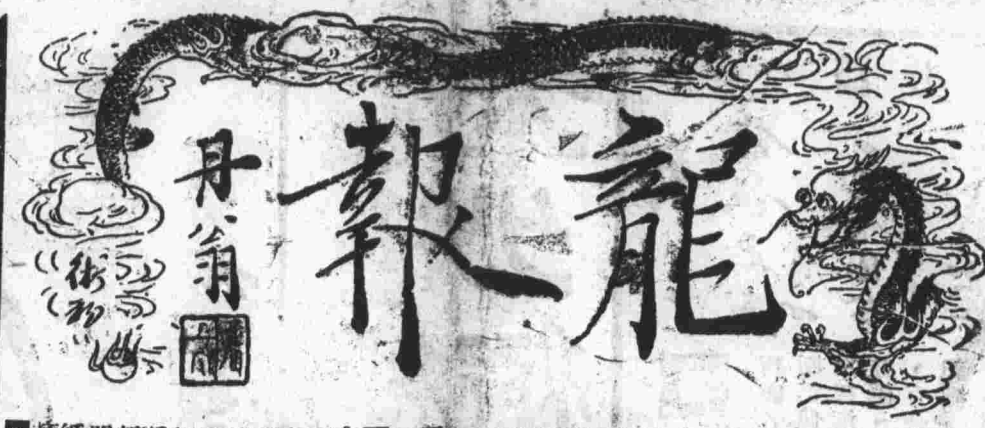 龍報
丹翁